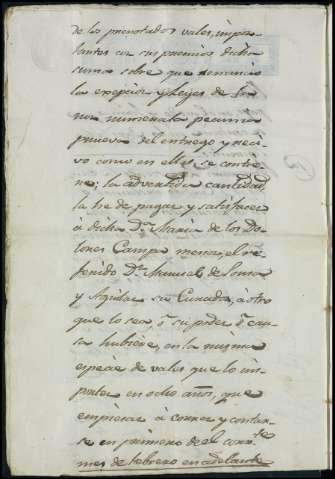 de los prenotados vales, impor-
tantes con sus premios dicha
suma sobre que renuncio
la exepcion y Leyes de la
non numerata pecunia
prueva del entrego y reci-
vo como en ellas se contie-
ne; la advertida cantidad,
la he de pagar y satisfacer
à dicha Dª. Maria de los Do-
lores Campo menor, el re-
ferido Dn. Manuel de Sousa
y Aguilar su Curador, à otro
que lo sea, ó su poder ó cau-
sa hubiere, en la misma
especie de vales que lo im-
porten en ocho años, que
empiezan à correr y contar-
se en primero de el corrte.
mes de febrero en adelante